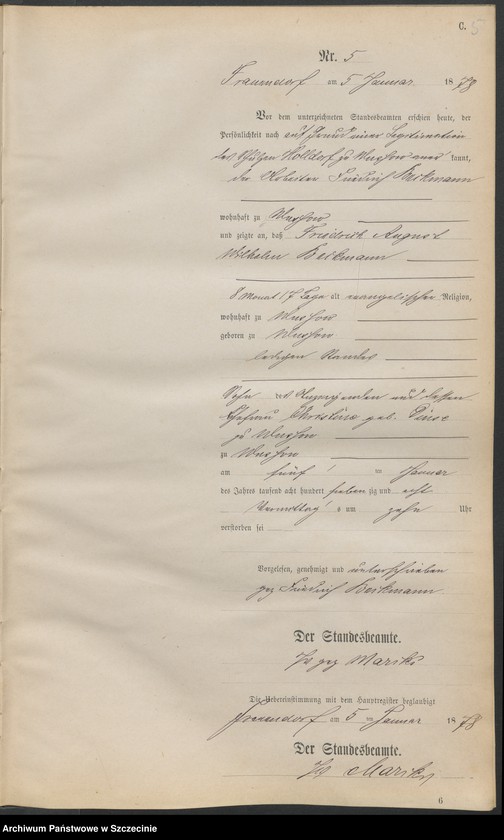 C. 5
Nr. 5
Frauendorf am 5 Januar 1878
Vor dem unterzeichneten Standesbeamten erschien heute, der
Persönlichkeit nach auf Grund einer Legitimation
des Schulzen zu Wussow kannt,
der Arbeiter Friedrich Beikmann
wohnhaft zu Wussow
und zeigte an, daß Friedrich August
Wilhelm Beikmann
8 Monat 17 Tage alt evangelischer Religion,
wohnhaft zu Wussow
geboren zu Wussow
ledigen Standes
Sohn des Anzeigenden und dessen
Ehefrau Christine geb.
zu Wussow
zu Wussow
am fünf ten Januar
des Jahres tausend acht hundert sieben zig und acht
Vormittags um zehn Uhr
verstorben sei
Vorgelesen, genehmigt und unterschrieben
gez Friedrich Beikmann
Der Standesbeamte.
gez
Die Uebereinstimmung mit dem Hauptregister beglaubigt
Frauendorf am 5 ten Januar 1878
Der Standesbeamte.
6
Archiwum Państwowe w Szczecinie